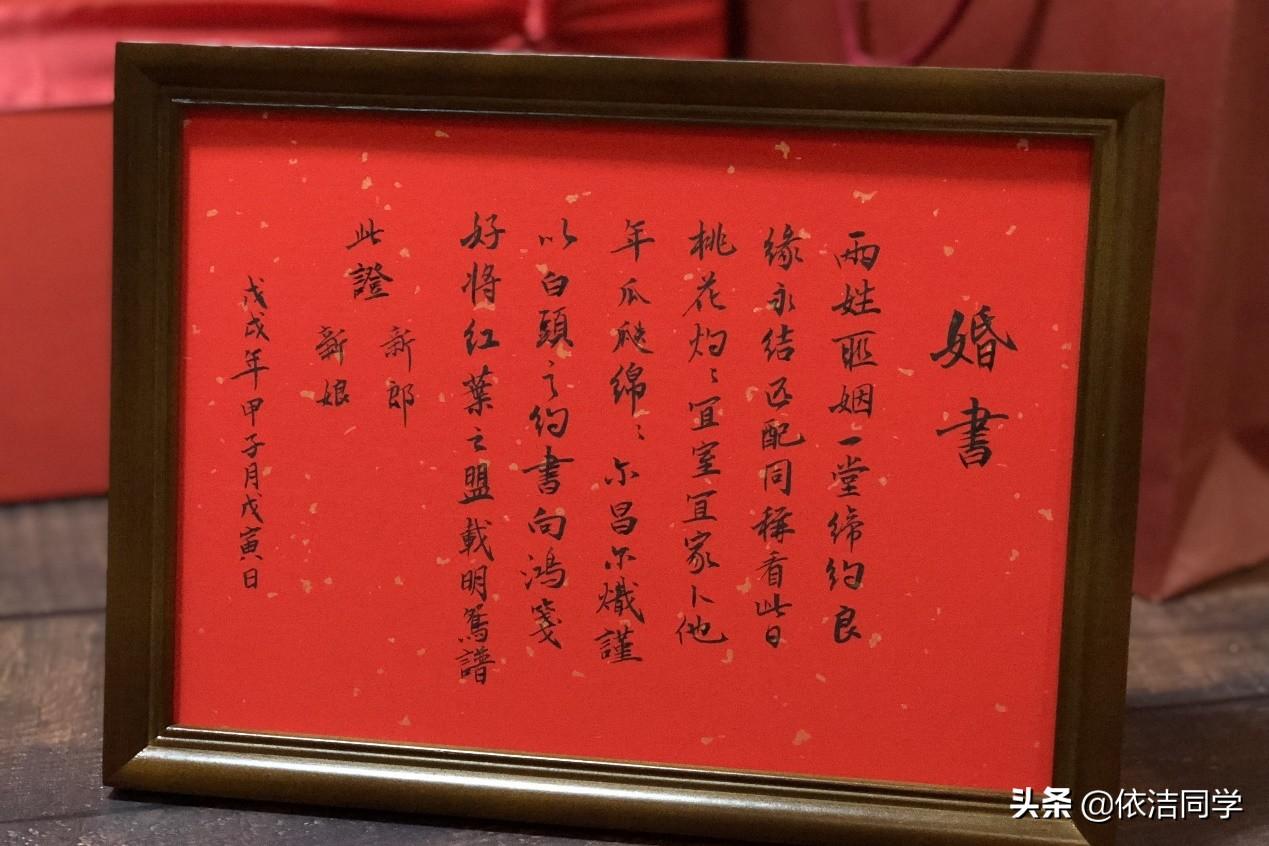 婚書
兩姓聯姻一堂締約良
緣永結匹配同稱看此日
桃花灼〻宜室宜家卜他
年瓜瓞綿〻尔昌尔熾謹
以白頭之約書向鴻箋
好將红葉之盟載明鴛譜
此證
新郎
新娘
戊戌年甲子月戊寅日
头条 @依洁同学